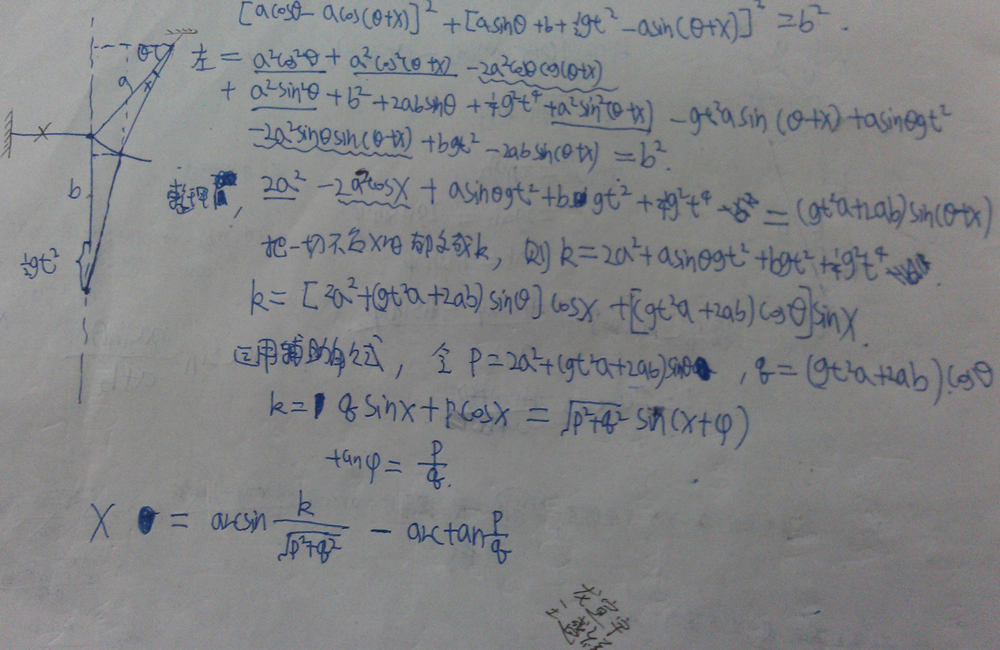 [acosθ - acos(θ+x)]² + [asinθ + b + ½gt² - asin(θ+x)]² = b².
左 = a²cos²θ + a²cos²(θ+x) - 2a²cosθcos(θ+x)
+ a²sin²θ + b² + 2absinθ + ¼g²t⁴ + a²sin²(θ+x) - gt²asin(θ+x) + asinθgt²
- 2a²sinθsin(θ+x) + bgt² - 2absin(θ+x) = b².
整理, 2a² - 2a²cosx + asinθgt² + bgt² + ¼g²t⁴ = (gt²a+2ab)sin(θ+x)
把一切不含x的都交成k, 则 k = 2a² + asinθgt² + bgt² + ¼g²t⁴
k = [2a² + (gt²a+2ab)sinθ]cosx + [(gt²a+2ab)cosθ]sinx.
运用辅助角公式, 令 p = 2a² + (gt²a+2ab)sinθ, q = (gt²a+2ab)cosθ
k = qsinx + pcosx = √p²+q² sin(x+φ)
tanφ = p/q.
x = arcsin k/√p²+q² - arctan p/q
θ
a
x
x
b
½gt²